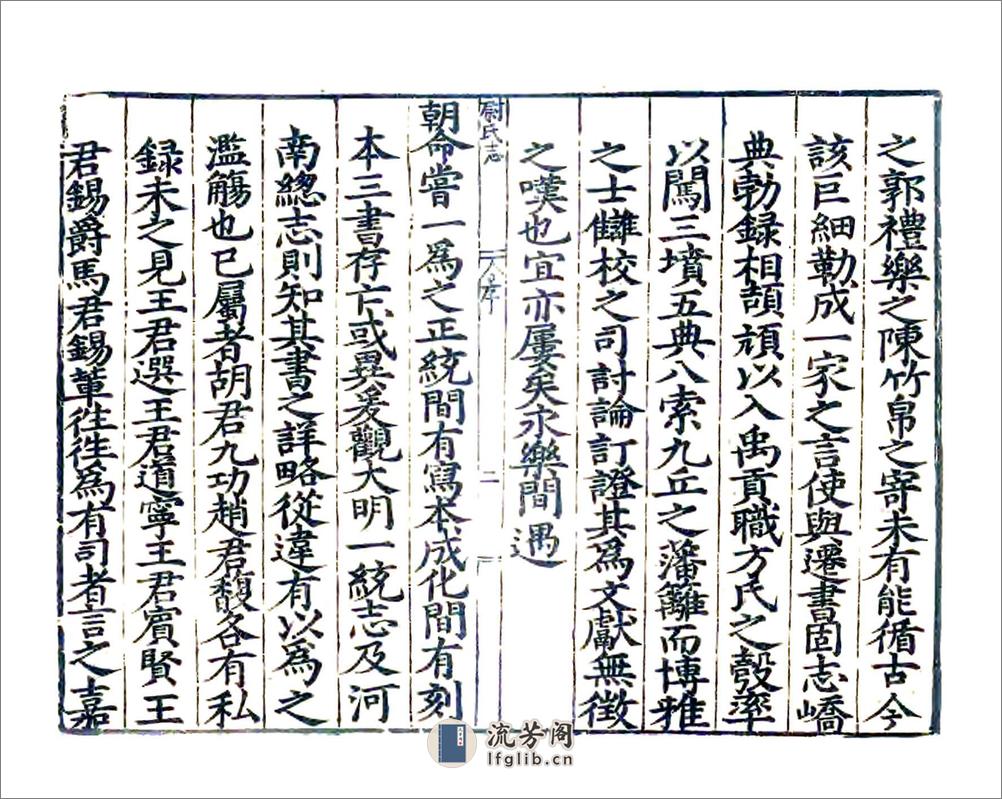 之郭禮樂之陳竹帛之寄未有能循古今
該巨細勒成一家之言使與遷書固志嶠
典勃録相頡頏以入禹貢職方民之彀率
以闖三墳五典八索九丘之藩籬而博雅
之士讎校之司討論訂證其為文獻無徵
之嘆也宜亦屢矣永樂間遇
尉氏志
序
二
朝命嘗一為之正統間有寫本成化間有刻
本三書存亡或異爰觀大明一統志及河
南總志則知其書之詳略從違有以為之
濫觴也已屬者胡君九功趙君馥各有私
録未之見王君選王君道寧王君賓賢王
君錫爵馬君錫輩往往為有司者言之嘉
流芳阁
lfglib.cn